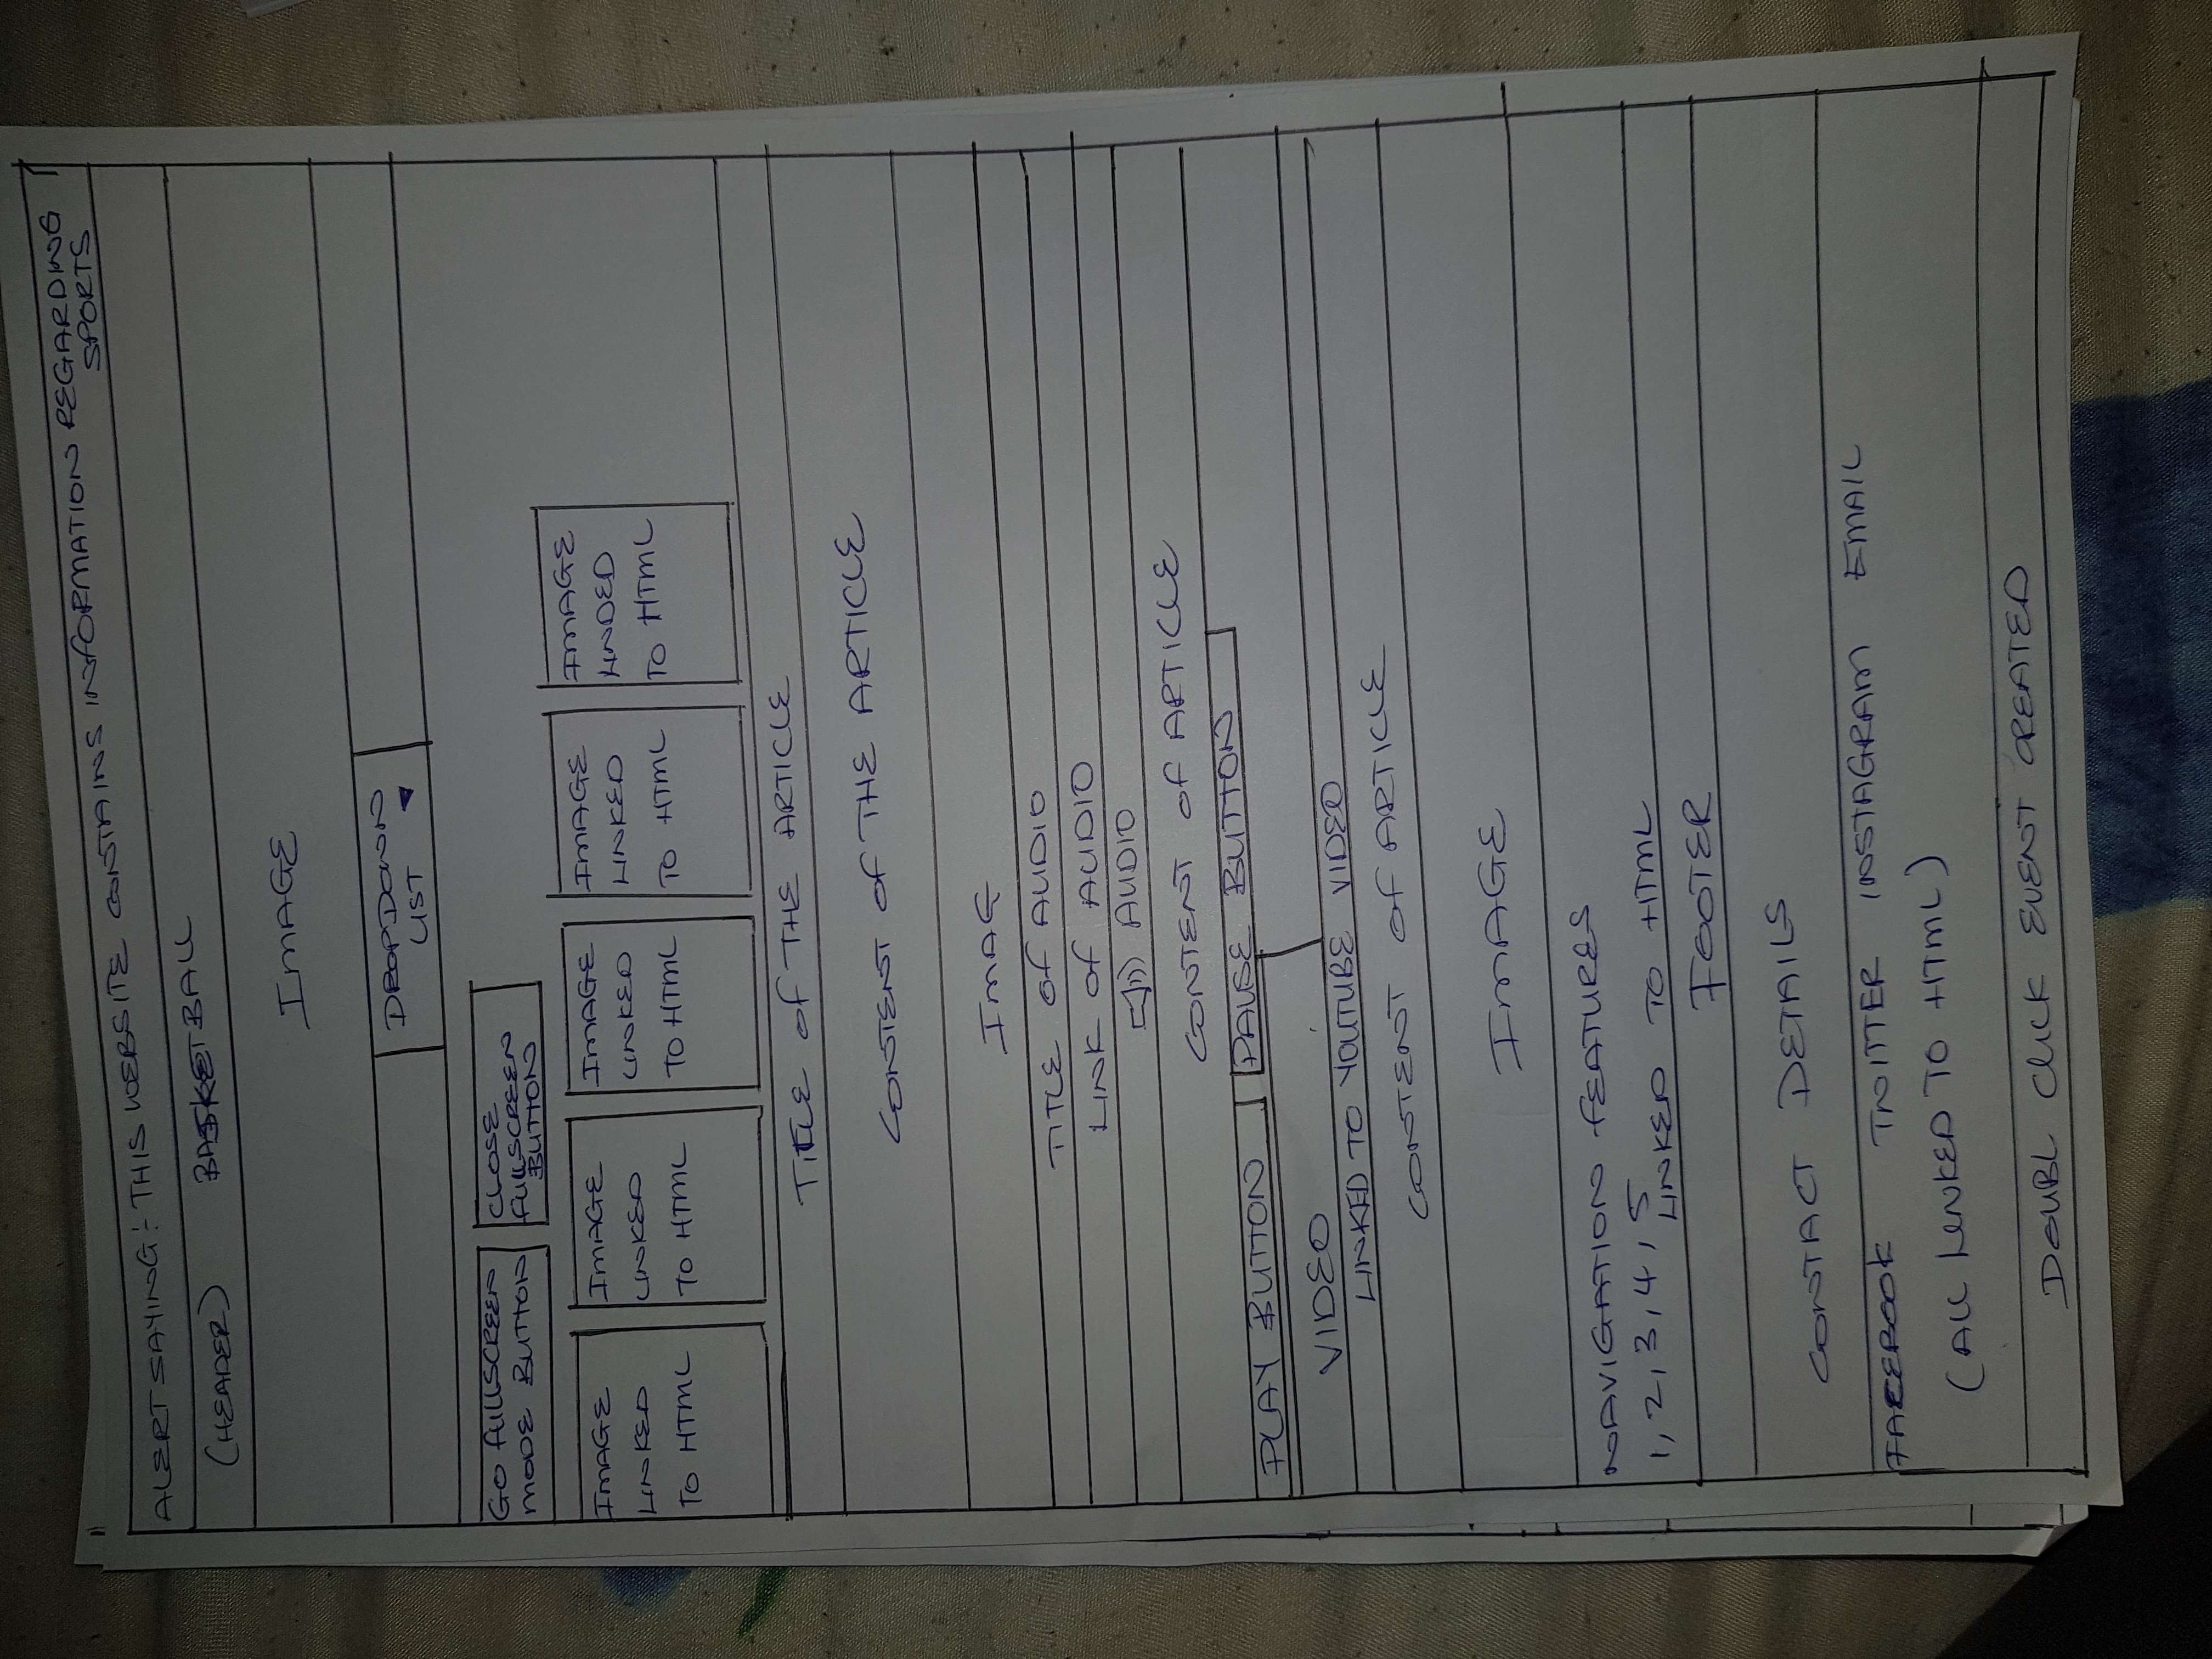 ALERT SAYING: THIS WEBSITE CONTAINS INFORMATION REGARDING
SPORTS
(HEADER) BASKETBALL
IMAGE
DROPDOWN
LIST
GO FULLSCREEN
MODE BUTTON
CLOSE
FULLSCREEN
BUTTON
IMAGE
LINKED
TO HTML
IMAGE
LINKED
TO HTML
IMAGE
LINKED
TO HTML
IMAGE
LINKED
TO HTML
IMAGE
LINDED
TO HTML
TITLE OF THE ARTICLE
CONTENT OF THE ARTICLE
IMAG
TITLE OF AUDIO
LINK OF AUDIO
AUDIO
CONTENT OF ARTICLE
PLAY BUTTON PAUSE BUTTON
VIDEO
LINKED TO YOUTUBE VIDEO
CONTENT OF ARTICLE
IMAGE
NAVIGATION FEATURES
1, 2, 3, 4, 5
LINKED TO HTML
FOOTER
CONTACT DETAILS
FACEBOOK TWITTER INSTAGRAM EMAIL
(ALL LINKED TO HTML)
DOUBL CLICK EVENT CREATED